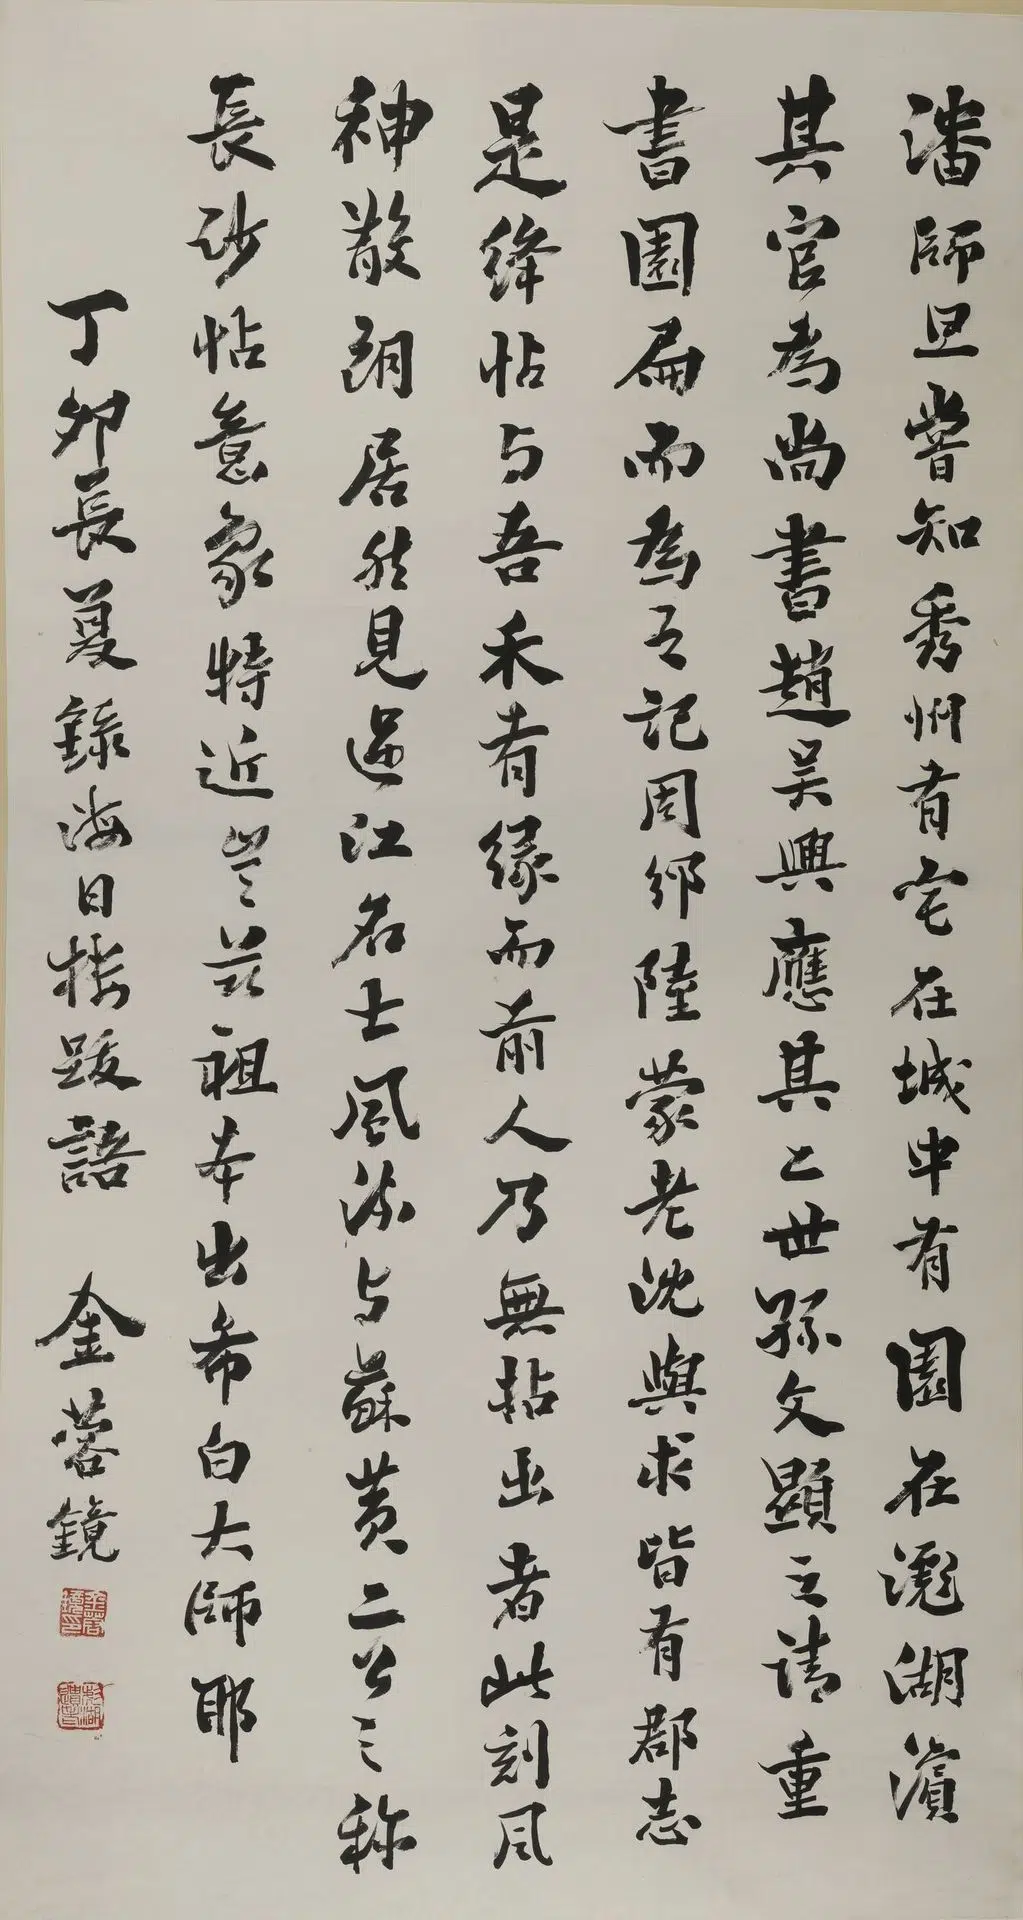 潘師旦嘗知秀州有宅在城中有園在滮湖濱
其官為尚書趙吳興應其七世孫文顯之請重
書園扁而為之記周邠陸蒙老沈與求皆有郡志
是絳帖与吾禾有緣而前人乃無拈出者此刻風
神散朗居然見過江名士風流与蘇黃二公之称
長沙帖意象特近豈茲祖本出希白大師耶
丁卯長夏錄海日樓跋語 金蓉鏡